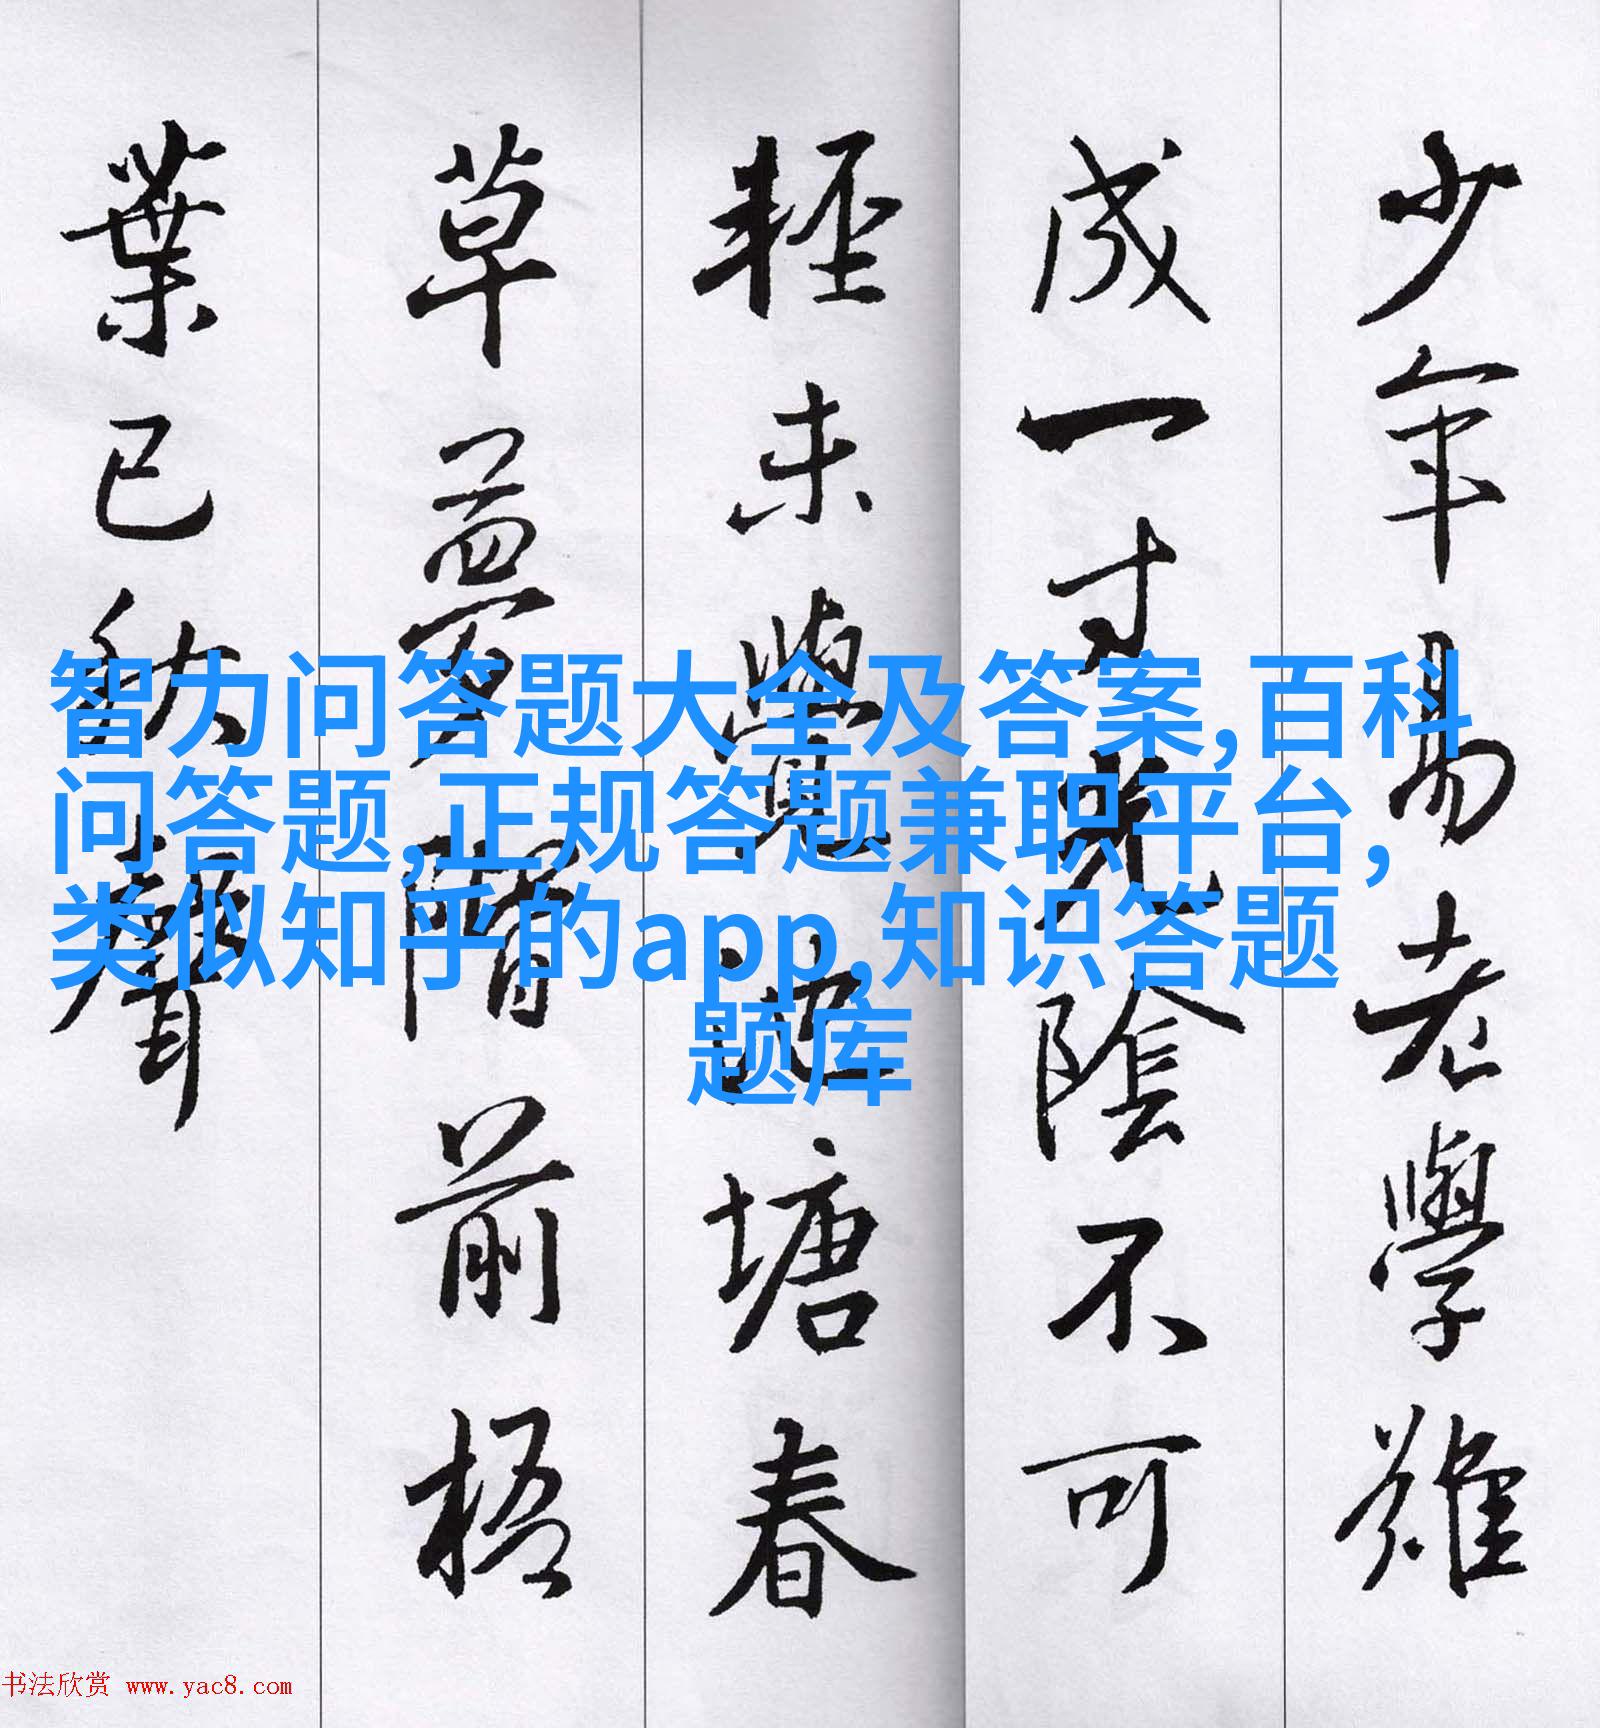 少年易老學難
成一寸光陰不可
輕未覺池塘春
草夢階前梧
葉已秋聲
智力问答题大全及答案,百科
问答题,正规答题兼职平台,
类似知乎的app,知识答题
题库
书法欣赏 www.yac8.com